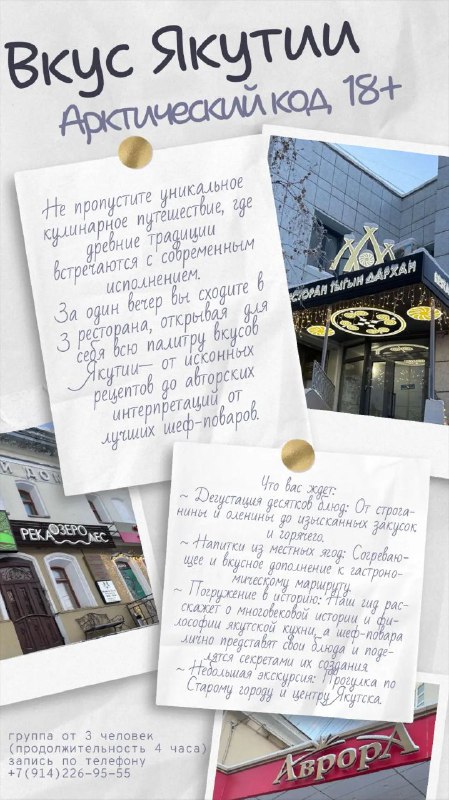 Вкус Якутии
Арктический код 18+
Не пропустите уникальное
кулинарное путешествие, где
древние традиции
встречаются с современным
исполнением.
За один вечер вы сходите в
3 ресторана, открывая для
себя всю палитру вкусов
Якутии— от исконных
рецептов до авторских
интерпретаций от
лучших шеф-поваров.
РЕСТОРАН ТЫГЫН ДАРХАН
Й ДОМ
РЕКА ОЗЕРО ЛЕС
Что вас ждет:
~ Дегустация десятков блюд: От строга-
нины и оленины до изысканных закусок
и горячего.
~ Напитки из местных ягод: Согреваю-
щее и вкусное дополнение к гастроно-
мическому маршруту.
~ Погружение в историю: Наш гид рас-
скажет о многовековой истории и фи-
лософии якутской кухни, а шеф-повара
лично представят свои блюда и поде-
лятся секретами их создания.
~ Небольшая экскурсия: Прогулка по
Старому городу и центру Якутска.
группа от 3 человек
(продолжительность 4 часа)
запись по телефону
+7(914)226-95-55
АврорА